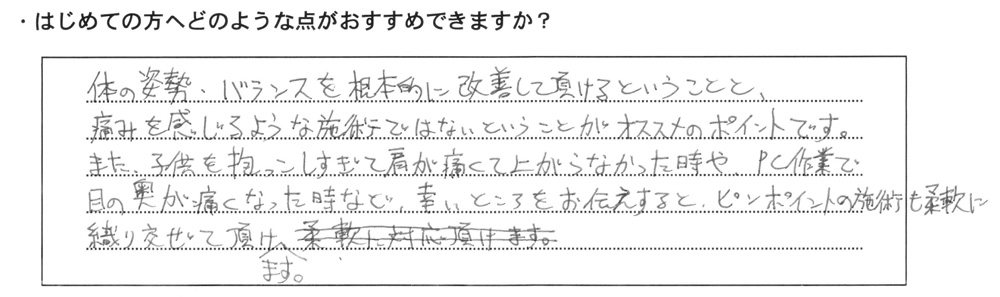 ・はじめての方へどのような点がおすすめできますか?
体の姿勢・バランスを根本的に改善して頂けるということと、
痛みを感じるような施術ではないということがオススメのポイントです。
また、子供を抱っこしすぎて肩が痛くて上がらなかった時や、PC作業で
目の奥が痛くなった時など、辛いところをお伝えすると、ピンポイントの施術も柔軟に
織り交ぜて頂け、柔軟に対応頂けます。
ます。